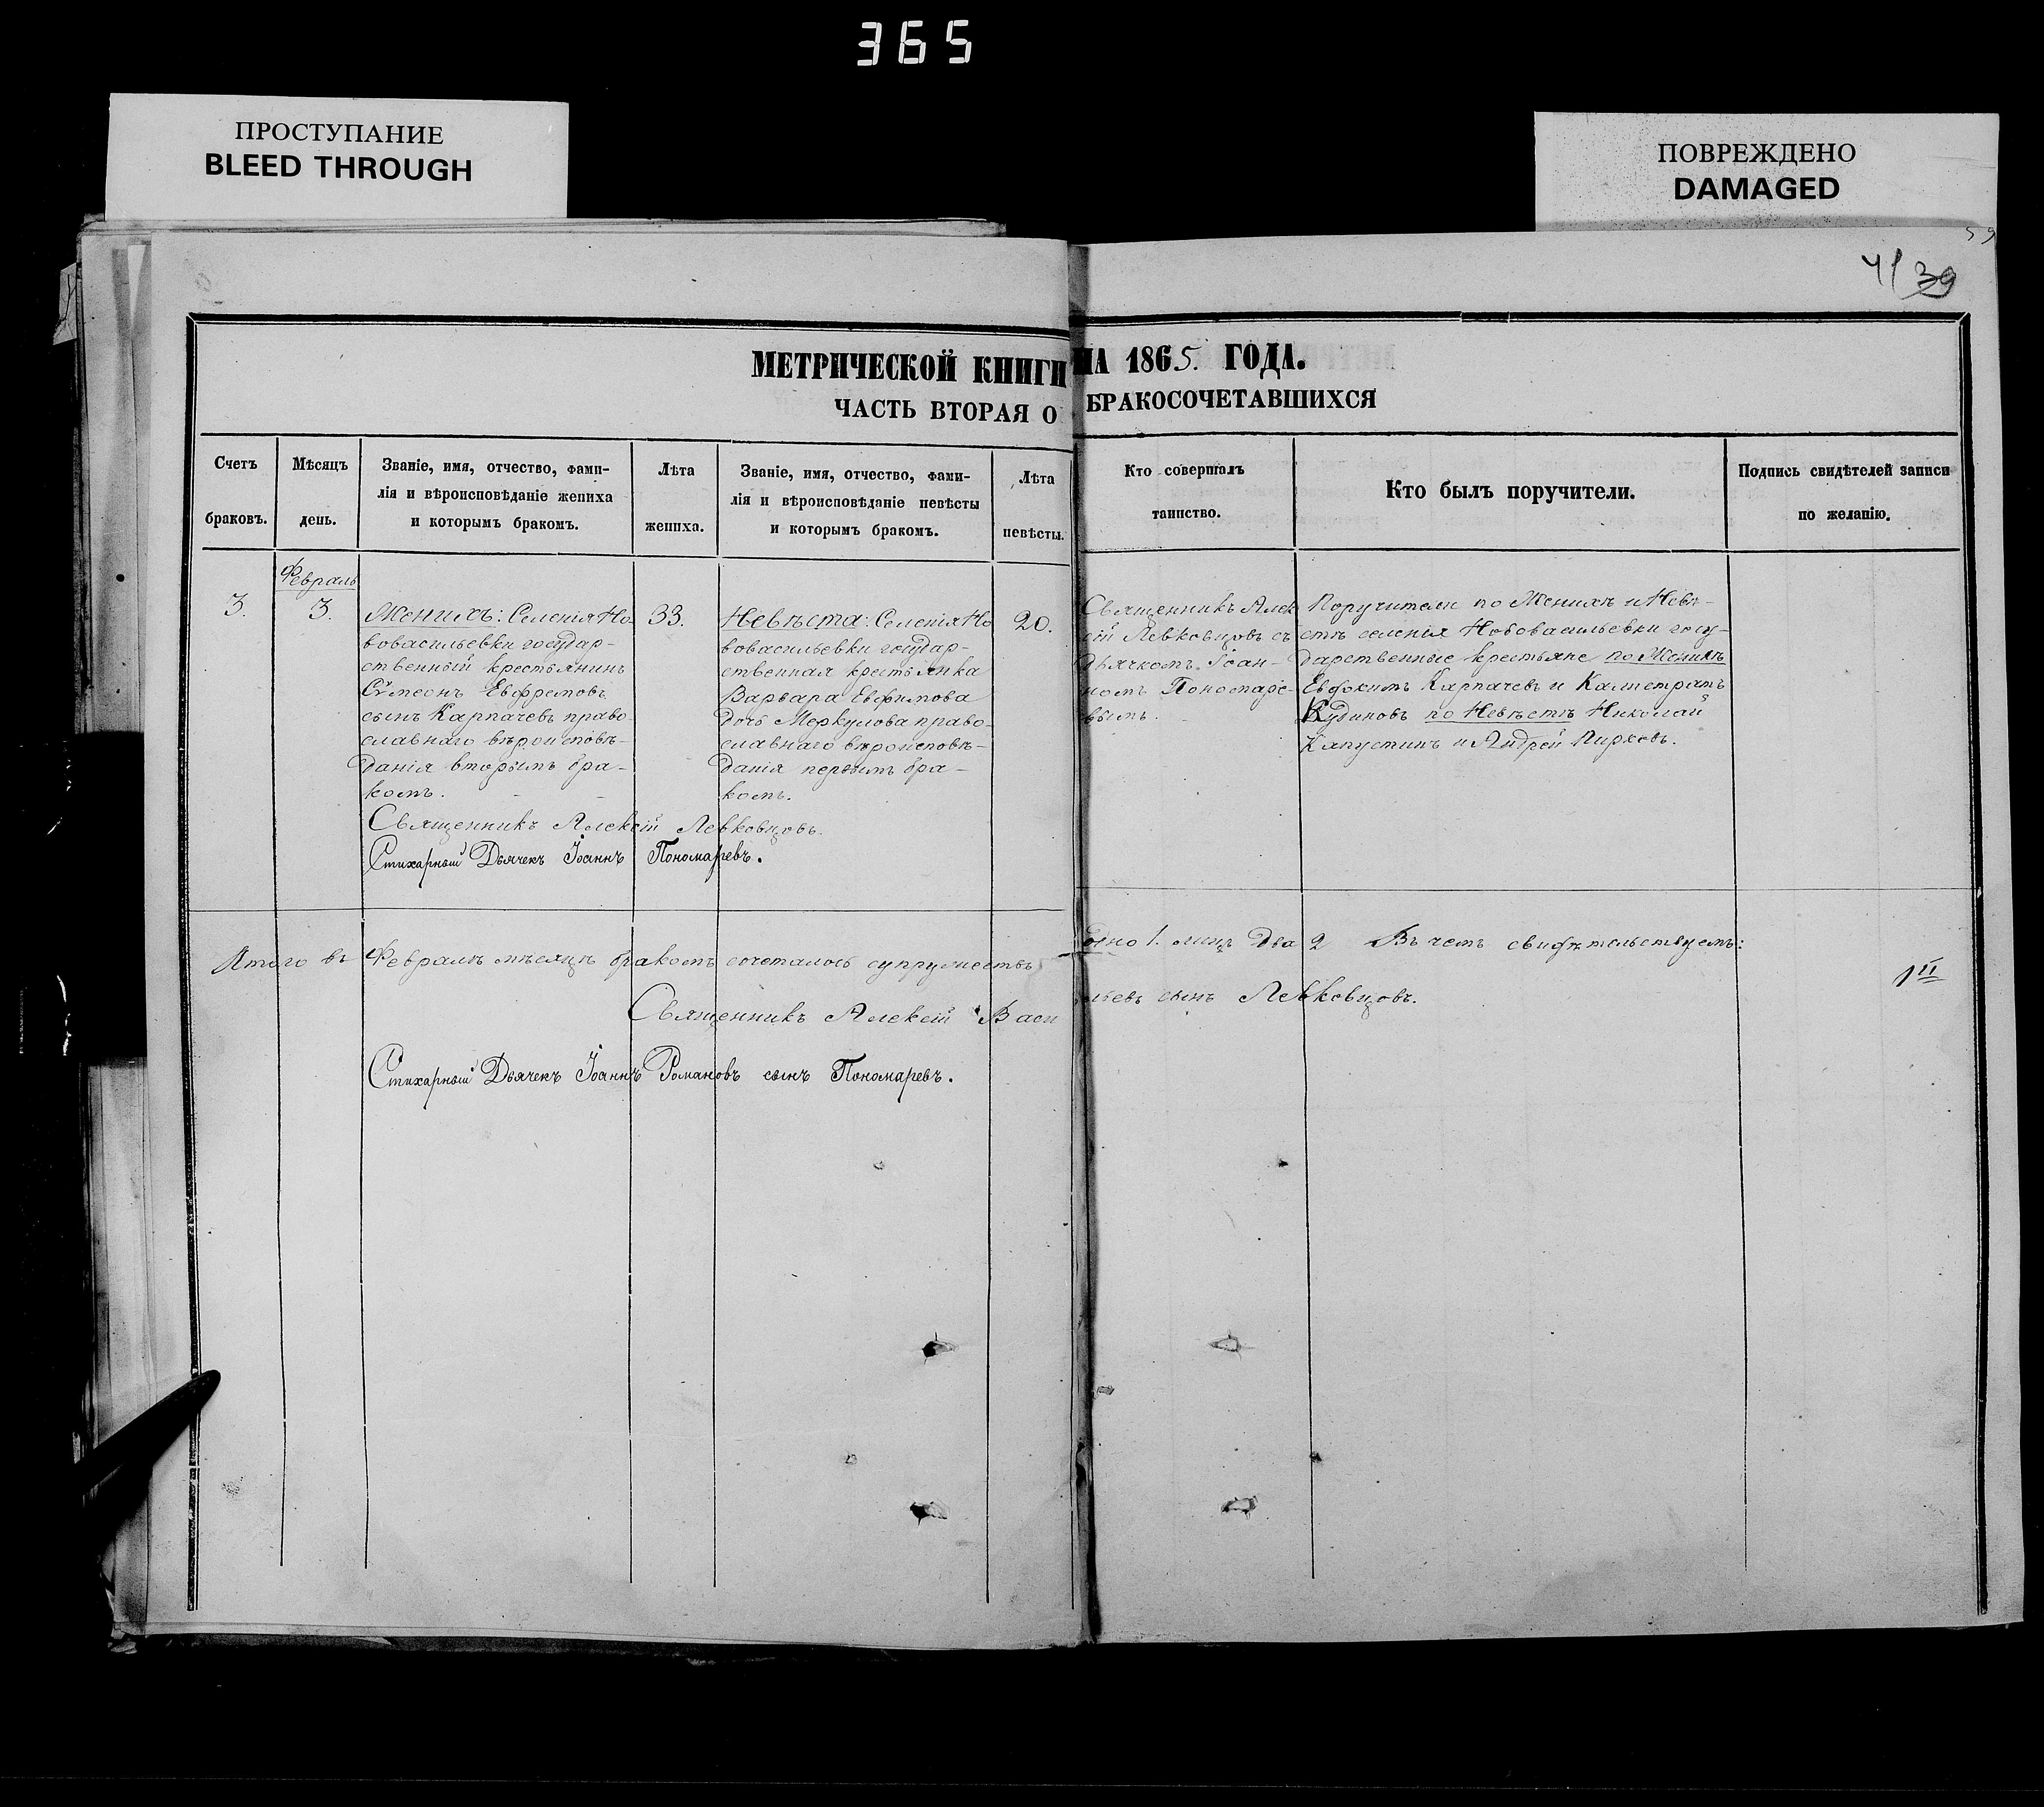 365
ПРОСТУПАНИЕ
BLEED THROUGH
ПОВРЕЖДЕНО
DAMAGED
59
41 39
МЕТРИЧЕСКОЙ КНИГИ НА 1865. ГОДА.
ЧАСТЬ ВТОРАЯ О БРАКОСОЧЕТАВШИХСЯ
Счетъ
браковъ.
Мѣсяцъ
день.
Званіе, имя, отчество, фами-
лія и вѣроисповѣданіе жениха
и которымъ бракомъ.
Лѣта
жениха.
Званіе, имя, отчество, фами-
лія и вѣроисповѣданіе невѣсты
и которымъ бракомъ.
Лѣта
невѣсты.
Кто совершалъ
таинство.
Кто былъ поручители.
Подпись свидѣтелей записи
по желанію.
3.
Февраль
3.
Женихъ: Селенія Но
вовасильевки государ-
ственный крестьянинъ
Сѵмеонъ Евфремовъ
сынъ Карпачевъ право
славнаго вѣроисповѣ-
данія вторымъ бра-
комъ.
33.
Невѣста: Селенія Но
вовасильевки государ-
ственная крестьянка
Варвара Евфимова
дочь Меркулова право
славнаго вѣроисповѣ-
данія первымъ бра-
комъ.
20.
Священникъ Алек
сій Левковцовъ съ
дьячкомъ Іоан-
номъ Пономаре-
вымъ.
Поручители по Женихѣ и Невѣ-
стѣ селенія Нововасильевки госу-
дарственные крестьяне по Женихѣ
Евфокимъ Карпачевъ и Калистратъ
Кудиновъ по Невѣстѣ Николай
Капустинъ и Андрей Пирховъ.
Священникъ Алексій Левковцовъ.
Стихарный Дьячекъ Іоаннъ Пономаревъ.
Итого въ Февралѣ мѣсяцѣ бракомъ сочеталось супружествъ одно 1. лицъ два 2 Въ чемъ свидѣтельствуемъ:
Священникъ Алексій Васильевъ сынъ Левковцовъ.
Стихарный Дьячекъ Іоаннъ Романовъ сынъ Пономаревъ.